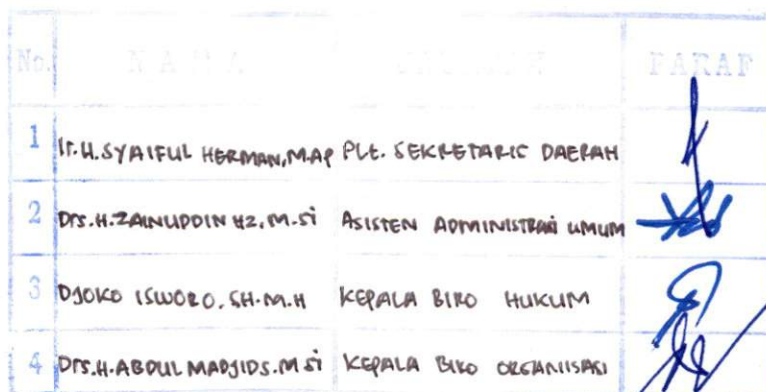 No. N A M A PARAF
1 Ir.H.SYAIFUL HERMAN,M.AP PLt. SEKRETARIS DAERAH
2 Drs.H.ZAINUDDIN HZ,M.Si ASISTEN ADMINISTRASI UMUM
3 DJOKO ISWORO,SH.M.H KEPALA BIRO HUKUM
4 Drs.H.ABDUL MADJID S.M Si KEPALA BIRO ORGANISASI